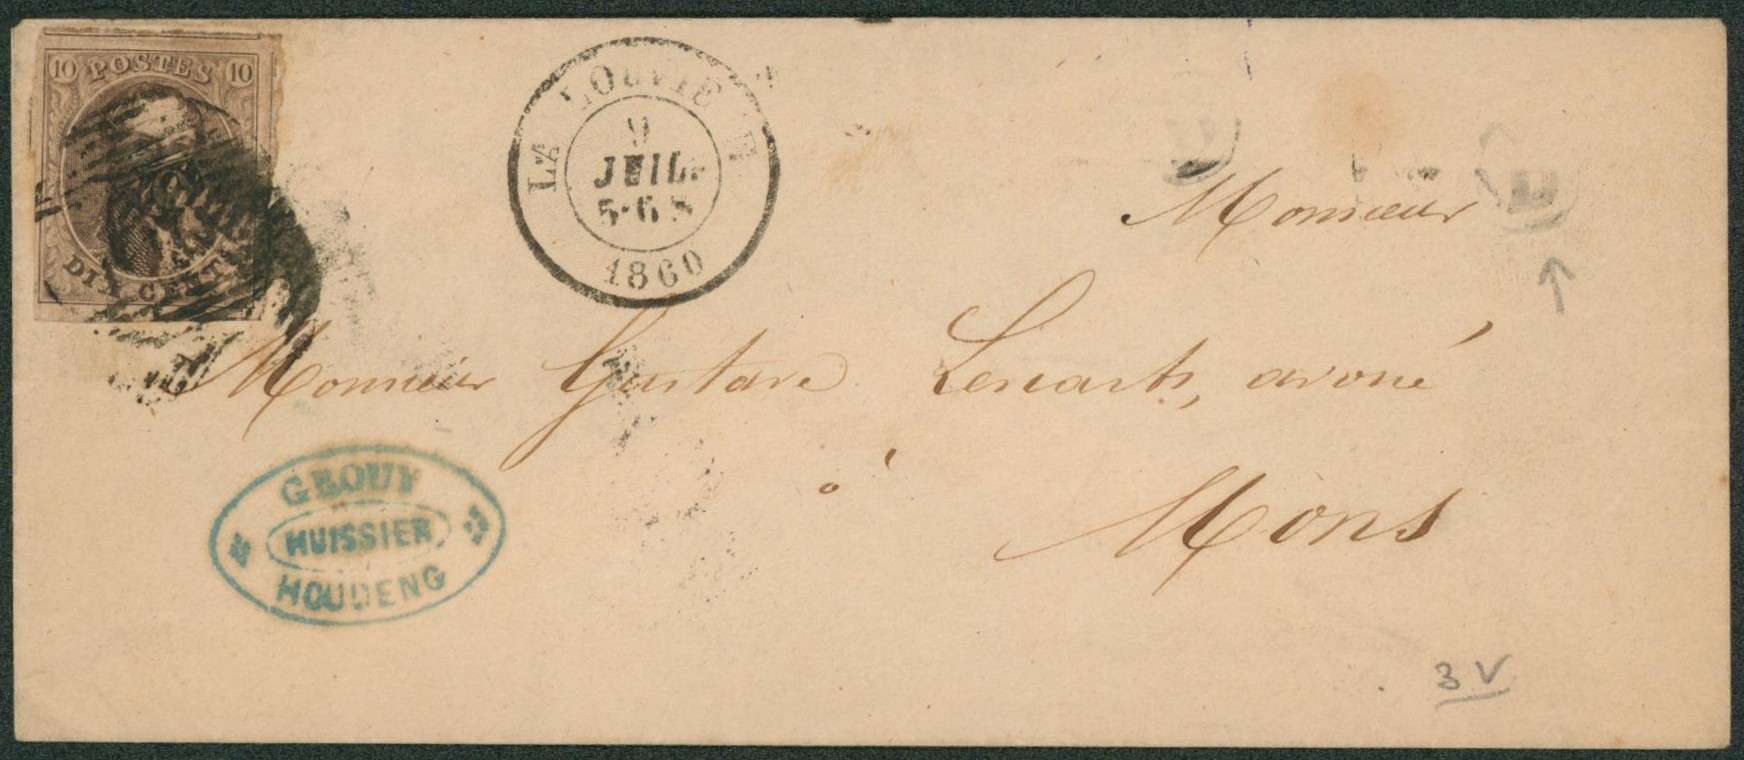 10 POSTES 10
DIX CENT
LA LOUVIE E
9
JUIL.
5-6 S
1860
Monsieur
Monsieur Gustave Lescarts, avoué
à
Mons
GROUY
HUISSIER
HOUDENG
D
3 V